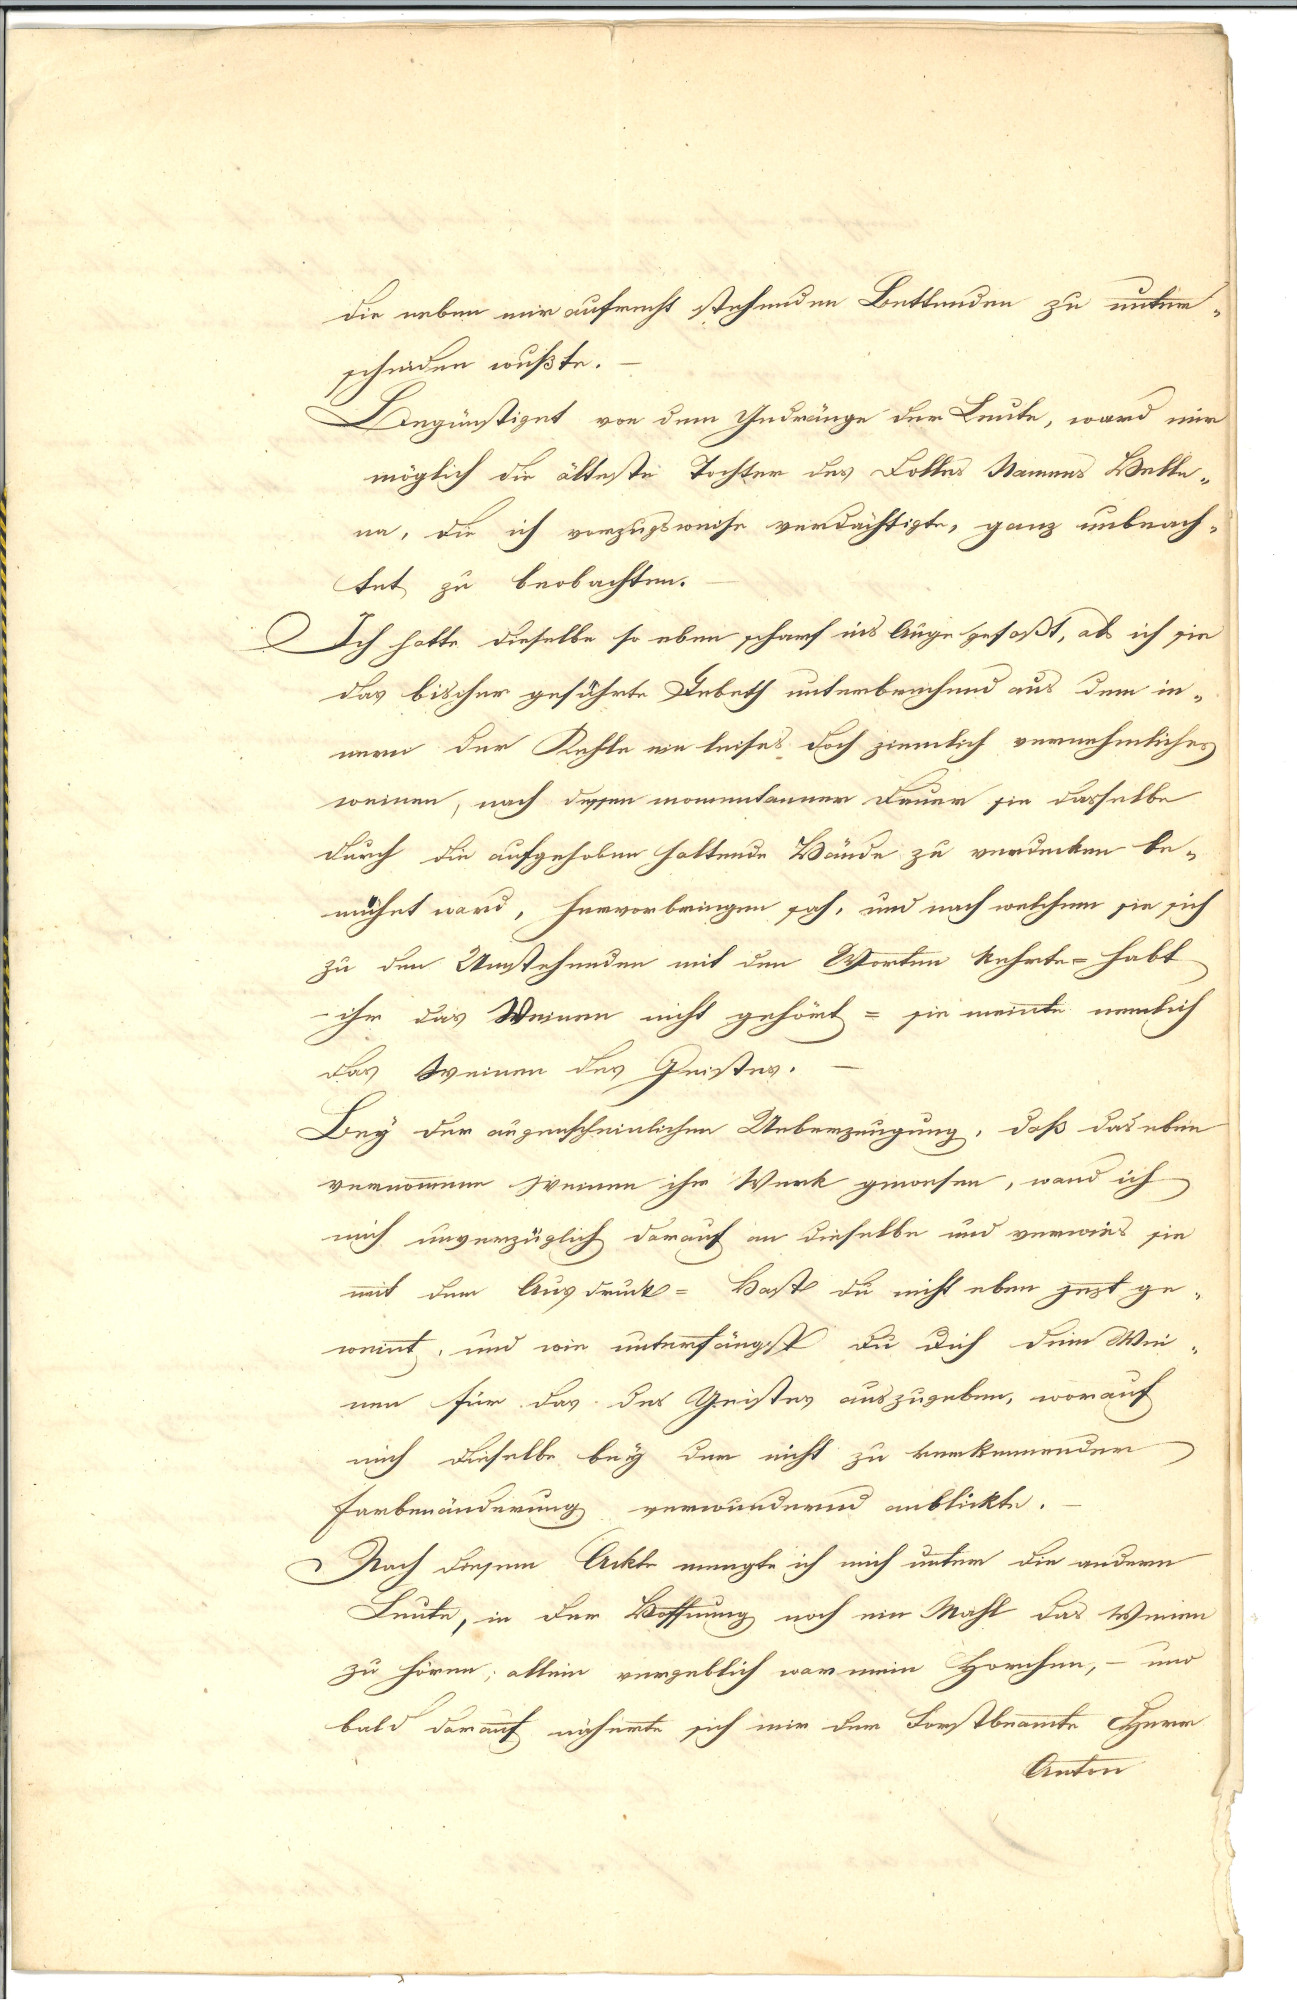 die neben mir aufrecht stehenden Bettenden zu unter-
scheiden wußte. –
Begünstiget von dem Gedränge der Leute, ward mir
möglich die älteste Tochter des Tolles Namens Helle-
na, die ich vorzugsweise verdächtigte, ganz unbeach-
tet zu beobachten. –
Ich hatte dieselbe so eben scharf ins Auge gefaßt, als ich sie
das bischer geführte Gebeth unterbrechend aus dem in-
nern der Kehle ein leises doch ziemlich vernehmliches
weinen, nach dessen momentaner Dauer sie dasselbe
durch die aufgehoben haltende Hände zu verdecken be-
mühet ward, hervorbringen sah, und nach welchem sie sich
zu den Umstehenden mit den Worten kehrte = habt
– ihr das Weinen nicht gehört = sie meinte nemlich
das Weinen des Geistes. –
Bey der augenscheinlichen Ueberzeugung, daß das eben
vernommene Weinen ihr Werk gewesen, wand ich
mich unverzüglich darauf an dieselbe und verwies sie
mit dem Ausdruck = Hast du nicht eben jezt ge-
weint, und wie unterfängst du dich dein Wei-
nen für das des Geistes auszugeben, worauf
mich dieselbe bey der nicht zu verkennender
Farbenänderung verwundernd anblickte. –
Nach diesem Ackte mengte ich mich unter die andern
Leute, in der Hoffnung noch ein Mahl das Weinen
zu hören; allein vergeblich war mein Horchen, – und
bald darauf näherte sich mir der Forstbeamte Herr
Anton